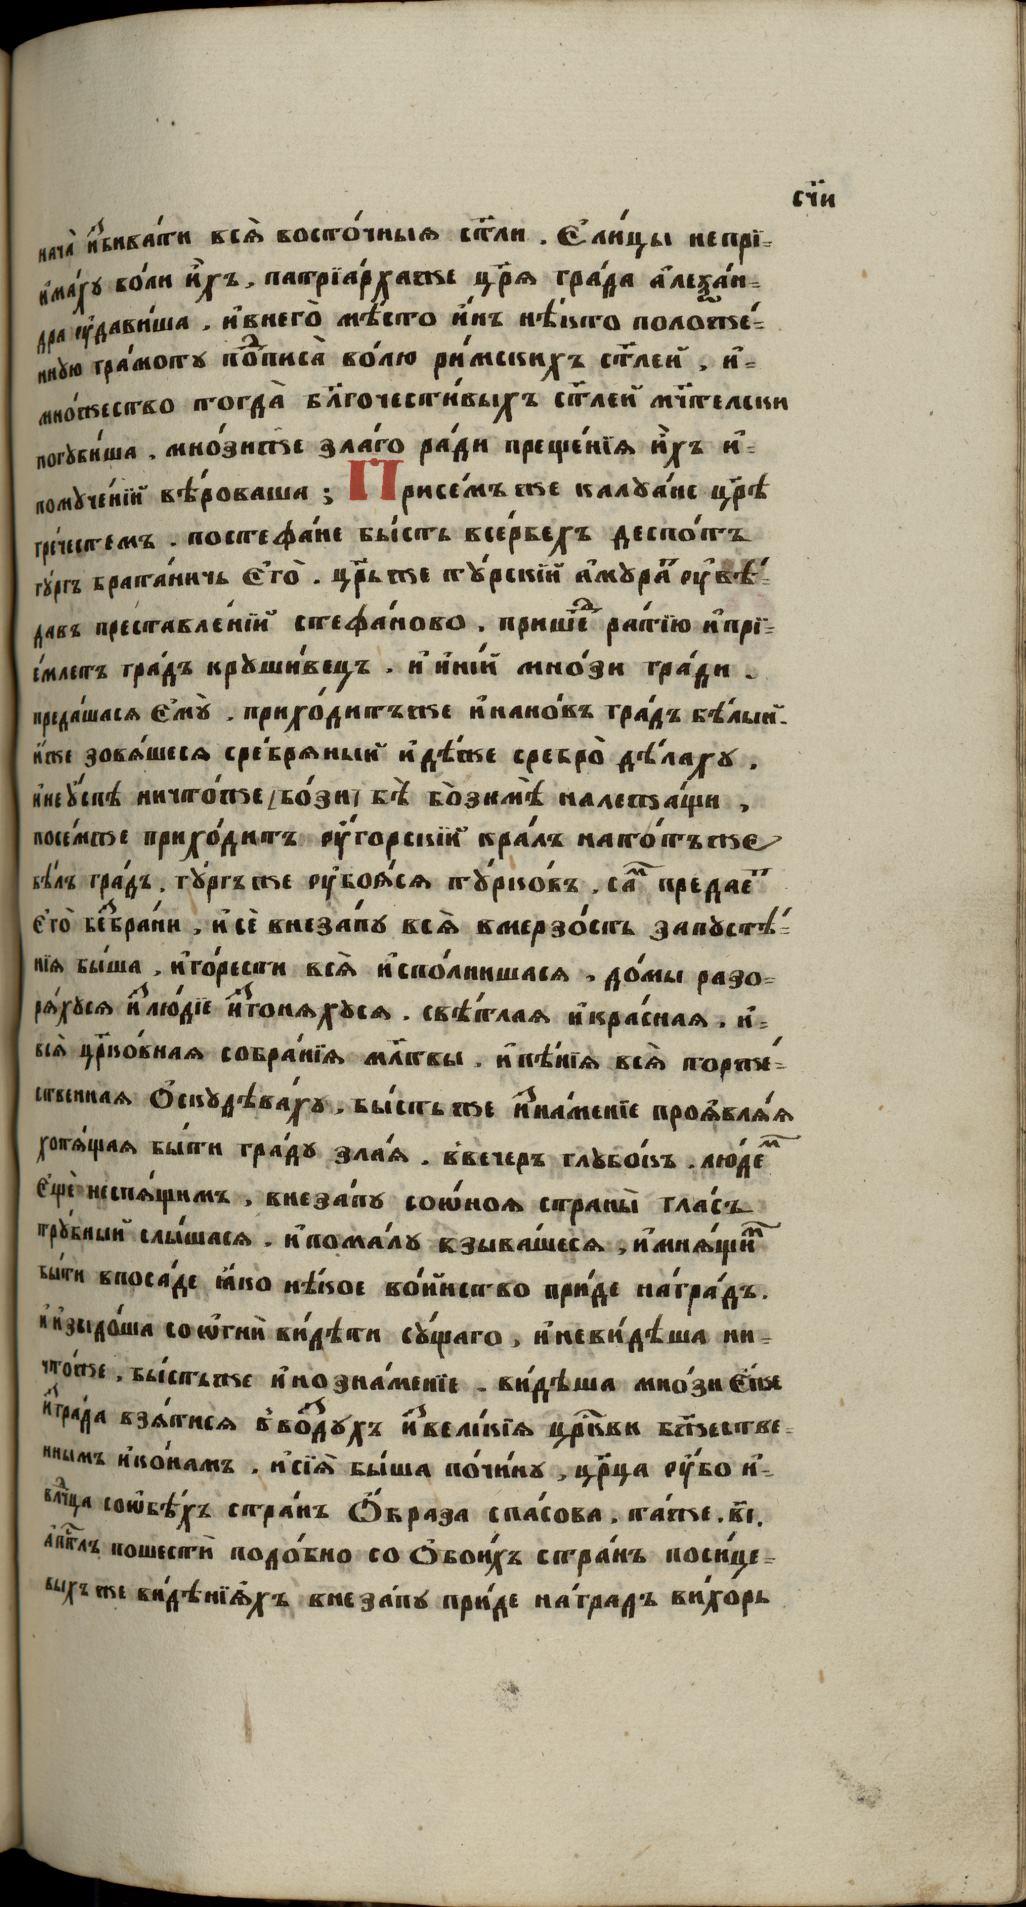 сч҃и
нача̀ и҆збива́ти всѧ̀ восто́чныѧ ст҃ли . Є҆ли́цы непрї=
и҆ма́хꙋ во́ли и҆́хъ , патрїа́рхаже цр҃ѧ гра́да а҆леѯа́н=
дра ᲂу҆дави́ша . и҆внего̀ мѣ́сто и҆́нъ нѣ́кто поло́же=
ннꙋю гра́мотꙋ по́дписа̀ во́лю ри́мскихъ ст҃лей , и҆=
мно́жество тогда̀ бл҃гочести́выхъ ст҃лей мч҃телски
погꙋби́ша , мно́зиже зла́го ра́ди преще́нїѧ и҆́хъ и҆=
помꙋче́нїй вѣ́роваша ; Присе́мъже калꙋа́не цр҃ѣ
гре́честемъ . постефа́не бы́сть всербехъ деспо́тъ
гю́ргъ брата́ничь є҆го̀ . цр҃ьже тꙋ́рскїй а҆мꙋра́т ᲂу҆вѣ́=
давъ преставле́нїй стефа́ново , прише́д ра́тїю и҆прї=
е́млетъ гра́дъ крꙋши́вецъ . и҆ и҆ні́й мно́зи гра́ди .
преда́шасѧ є҆мꙋ̀ . прихо́дитъже и҆нано́въ гра́дъ бѣ́лый .
и҆́же зовѧ́шесѧ сре́брѧный и҆дѣ́же сребро̀ дѣ́лахꙋ .
и҆неᲂу҆спѣ ничто́же , бо́зи бѣ̀ во̀зимѣ̀ належа́щи ,
посе́мже прихо́дитъ ᲂу҆́горскїй кра́лъ нато́тъже
бѣ́лъ гра́дъ . гю́ргъже ᲂу҆боѧ́сѧ тꙋ́рковъ , са́м предае́т
є҆го̀ без̾бра́ни , и҆сѐ внеза́пꙋ всѧ̀ вмерзо́сть запꙋстѣ́=
нїѧ бы́ша , и҆го́рести всѧ̀ и҆спо́лнишасѧ , до́мы разо=
рѧ́хꙋсѧ и҆лю́дїе и҆згонѧ́хꙋсѧ . свѣ́тлаѧ и҆кра́снаѧ . и҆=
всѧ̀ цр҃ко́внаѧ собра́нїѧ мл҃твы . и҆пѣ́нїѧ всѧ̀ торже́=
ственнаѧ ѻ҆скꙋдѣва́хꙋ . бы́стьже и҆зна́менїе проѧвлѧ́ѧ
хотѧ́щаѧ бы́ти гра́дꙋ зла́ѧ . в̾вечеръ глꙋбо́къ . лю́дем
є҆щѐ неспѧ́щимъ , внеза́пꙋ сою҆́ноѧ страны̀ гла́съ
трꙋ́бный слы́шасѧ . и҆пома́лꙋ взыва́шесѧ , и҆мнѧ́щим
бы́ти впоса́де ꙗ҆́ко нѣ́кое во́инство прі́де на́гра́дъ .
и҆ и҆зыдо́ша соѻ҆гні́ ви́дѣти сꙋ́щаго , и҆неви́дѣша ни=
что́же . бы́стьже и҆но зна́менїе . ви́дѣша мно́зи є҆́же
и҆з̾гра́да взѧ́тисѧ в̾во́здꙋхъ и҆звели́кїѧ цр҃кви бж҃естве=
ннымъ и҆ко́намъ . и҆сїѧ̀ бы́ша по́чинꙋ , цр҃ца ᲂу҆́бо и҆=
влⷣчца соѻ҆бѣ́хъ стра́нъ ѻ҆́браза спа́сова . та́же . в҃і .
а҆пⷭ҇лъ пошести́ подо́бно со ѻ҆бои́хъ стра́нъ поси́це=
выхъже ви́дѣнїѧхъ внеза́пꙋ прі́де на́градъ ви́хорь